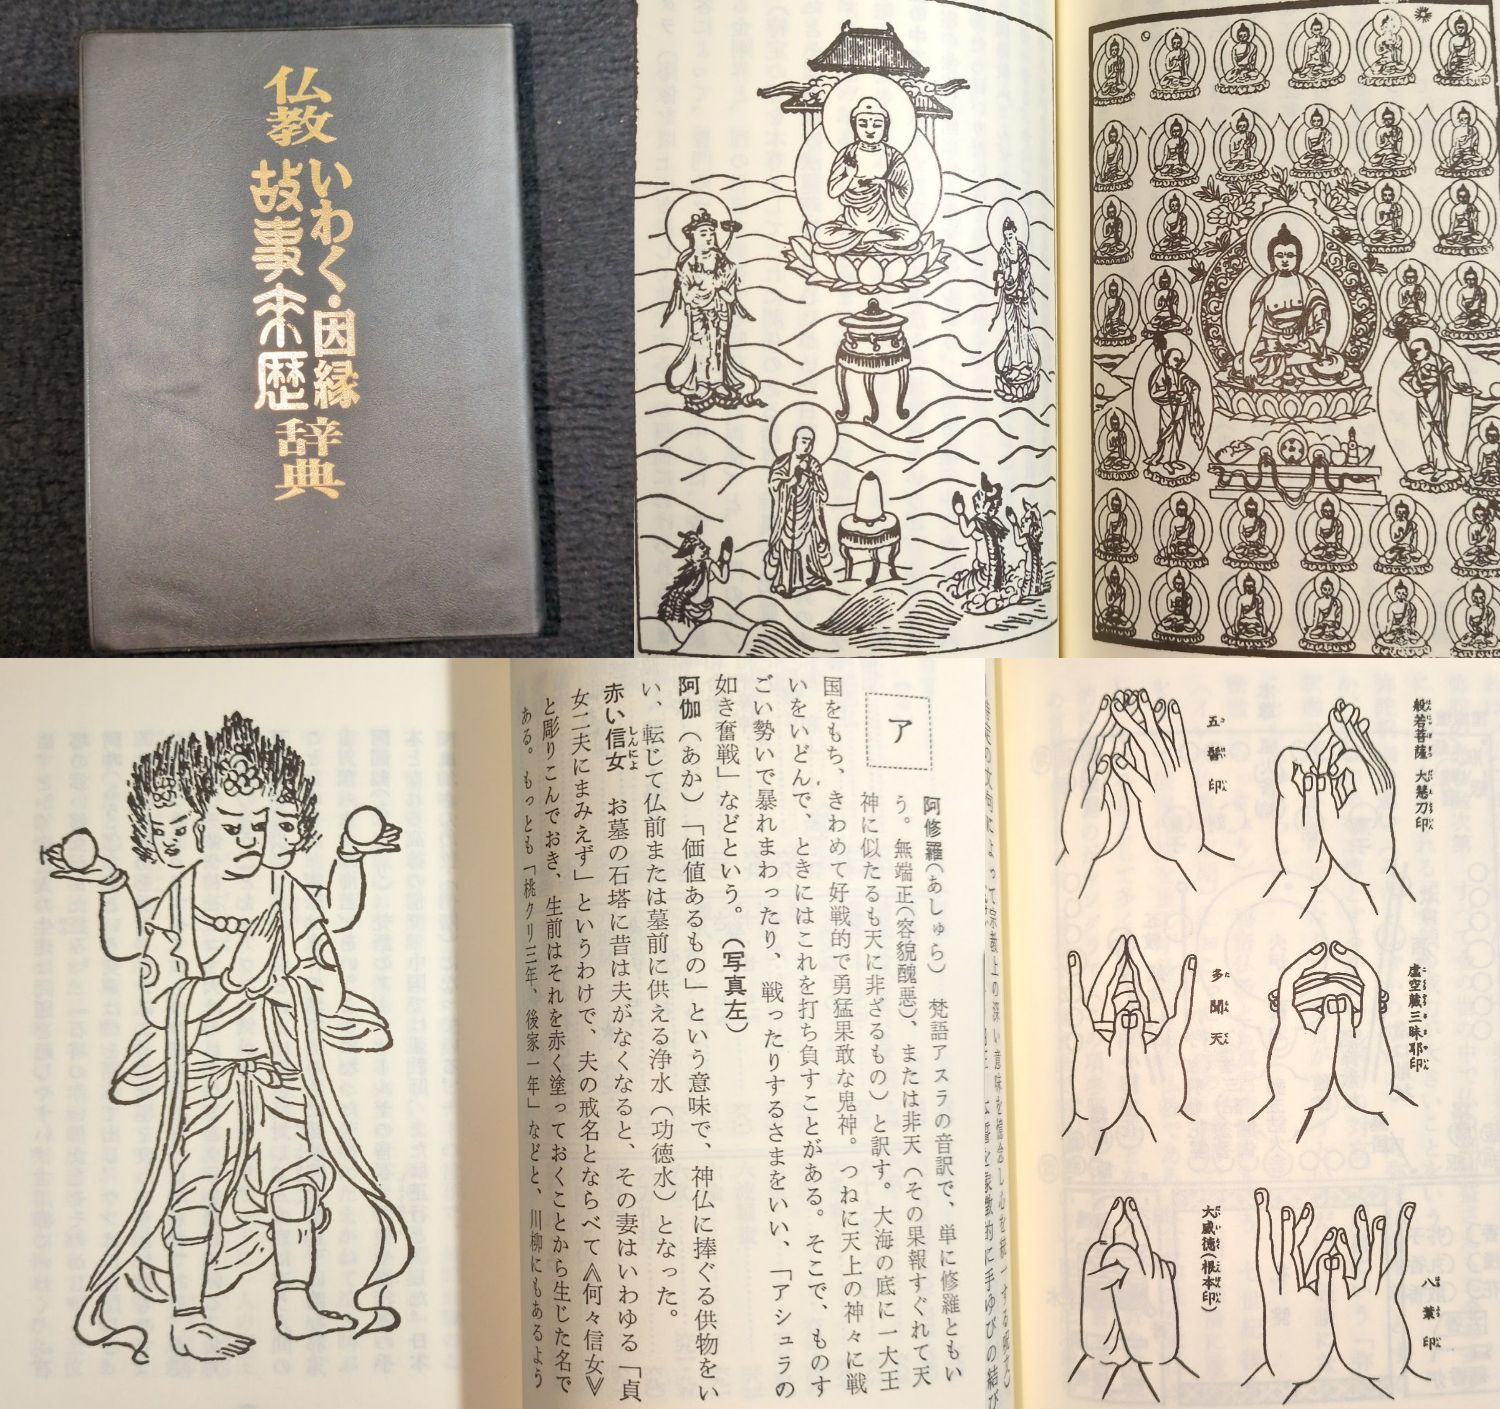 仏教
いわく・因縁
故事来歴
辞典
ア
阿修羅(あしゅら) 梵語アスラの音訳で、単に修羅ともい
う。無端正(容貌醜悪)、または非天(その果報すぐれて天
神に似たるも天に非ざるもの)と訳す。大海の底に一大王
国をもち、きわめて好戦的で勇猛果敢な鬼神。つねに天上の神々に戦
いをいどんで、ときにはこれを打ち負すことがある。そこで、ものす
ごい勢いで暴れまわったり、戦ったりするさまをいい、「アシュラの
如き奮戦」などという。(写真左)
阿伽(あか)「価値あるもの」という意味で、神仏に捧ぐる供物をい
い、転じて仏前または墓前に供える浄水(功徳水)となった。
赤い信女 お墓の石塔に昔は夫がなくなると、その妻はいわゆる「貞
しんにょ
女二夫にまみえず」というわけで、夫の戒名とならべて《何々信女》
と彫りこんでおき、生前はそれを赤く塗っておくことから生じた名で
ある。もっとも「桃クリ三年、後家一年」などと、川柳にもあるよう
般若菩薩 大慧刀印
五髻印
虚空蔵三昧耶印
多聞天
八葉印
大威徳(根本印)